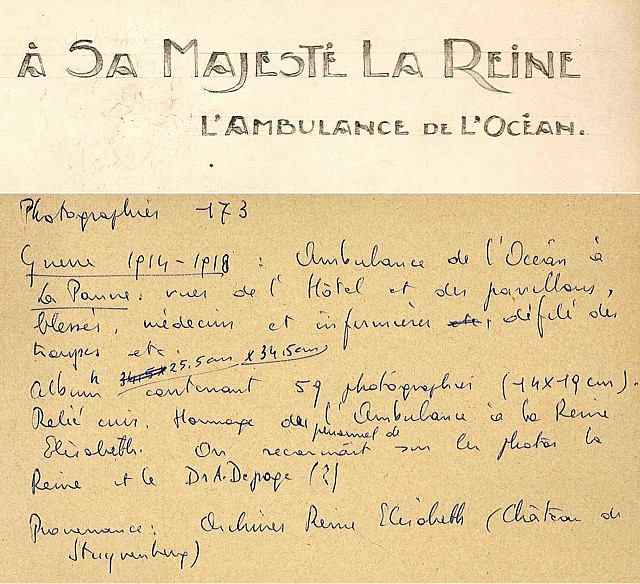 À SA MAJESTÉ LA REINE
L'AMBULANCE DE L'OCÉAN.
Photographies 173
Guerre 1914-1918 : Ambulance de l'Océan à
La Panne : vues de l'Hôtel et des pavillons,
blessés, médecins et infirmières etc, défilé des
troupes etc.
Album 34,5 x 25,5cm x 34,5cm contenant 59 photographies (14x19cm).
Relié cuir. Hommage du personnel de l'Ambulance à la Reine
Elisabeth. On reconnaît sur les photos la
Reine et le Dr A. Depage (?)
Provenance : Archives Reine Elisabeth (Château de
Stuyvenberg)